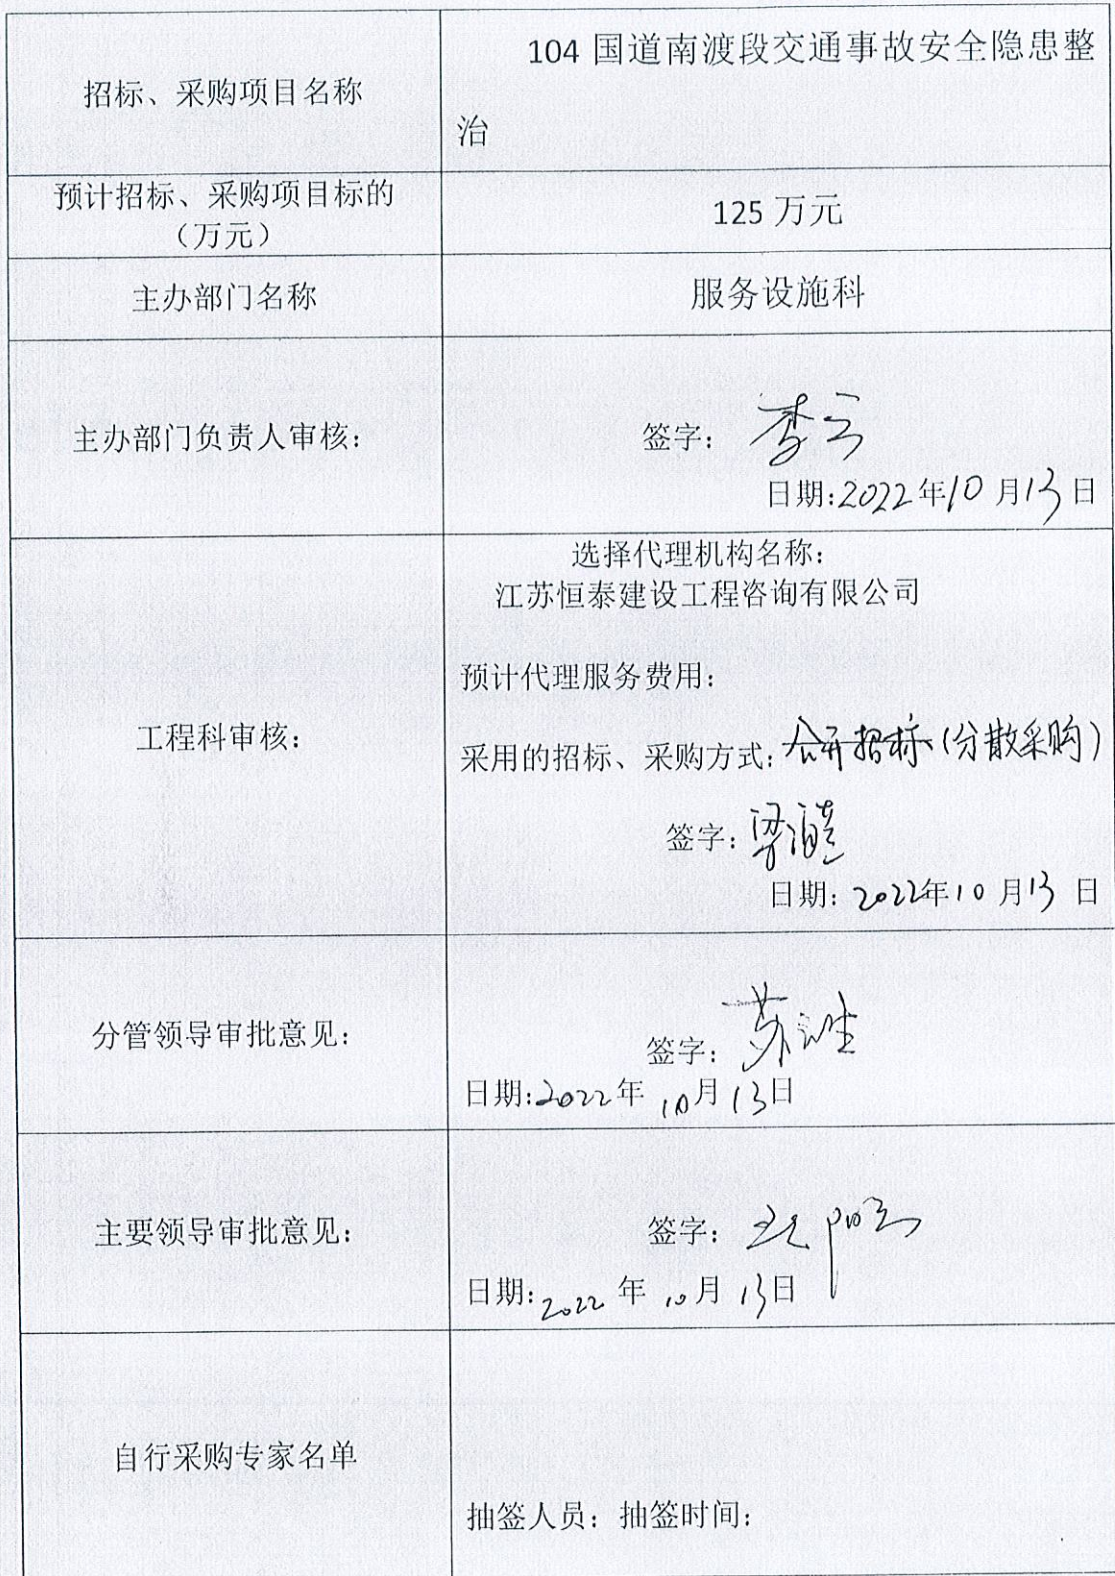 招标、采购项目名称
104 国道南渡段交通事故安全隐患整
治
预计招标、采购项目标的
（万元）
125 万元
主办部门名称
服务设施科
主办部门负责人审核：
签字： 李云
日期:2022年10月13日
工程科审核：
选择代理机构名称：
江苏恒泰建设工程咨询有限公司
预计代理服务费用：
采用的招标、采购方式: 公开招标(分散采购)
签字:
日期: 2022年10月13日
分管领导审批意见：
签字: 苏
日期:2022年10月13日
主要领导审批意见：
签字:
日期:2022年10月13日
自行采购专家名单
抽签人员： 抽签时间：